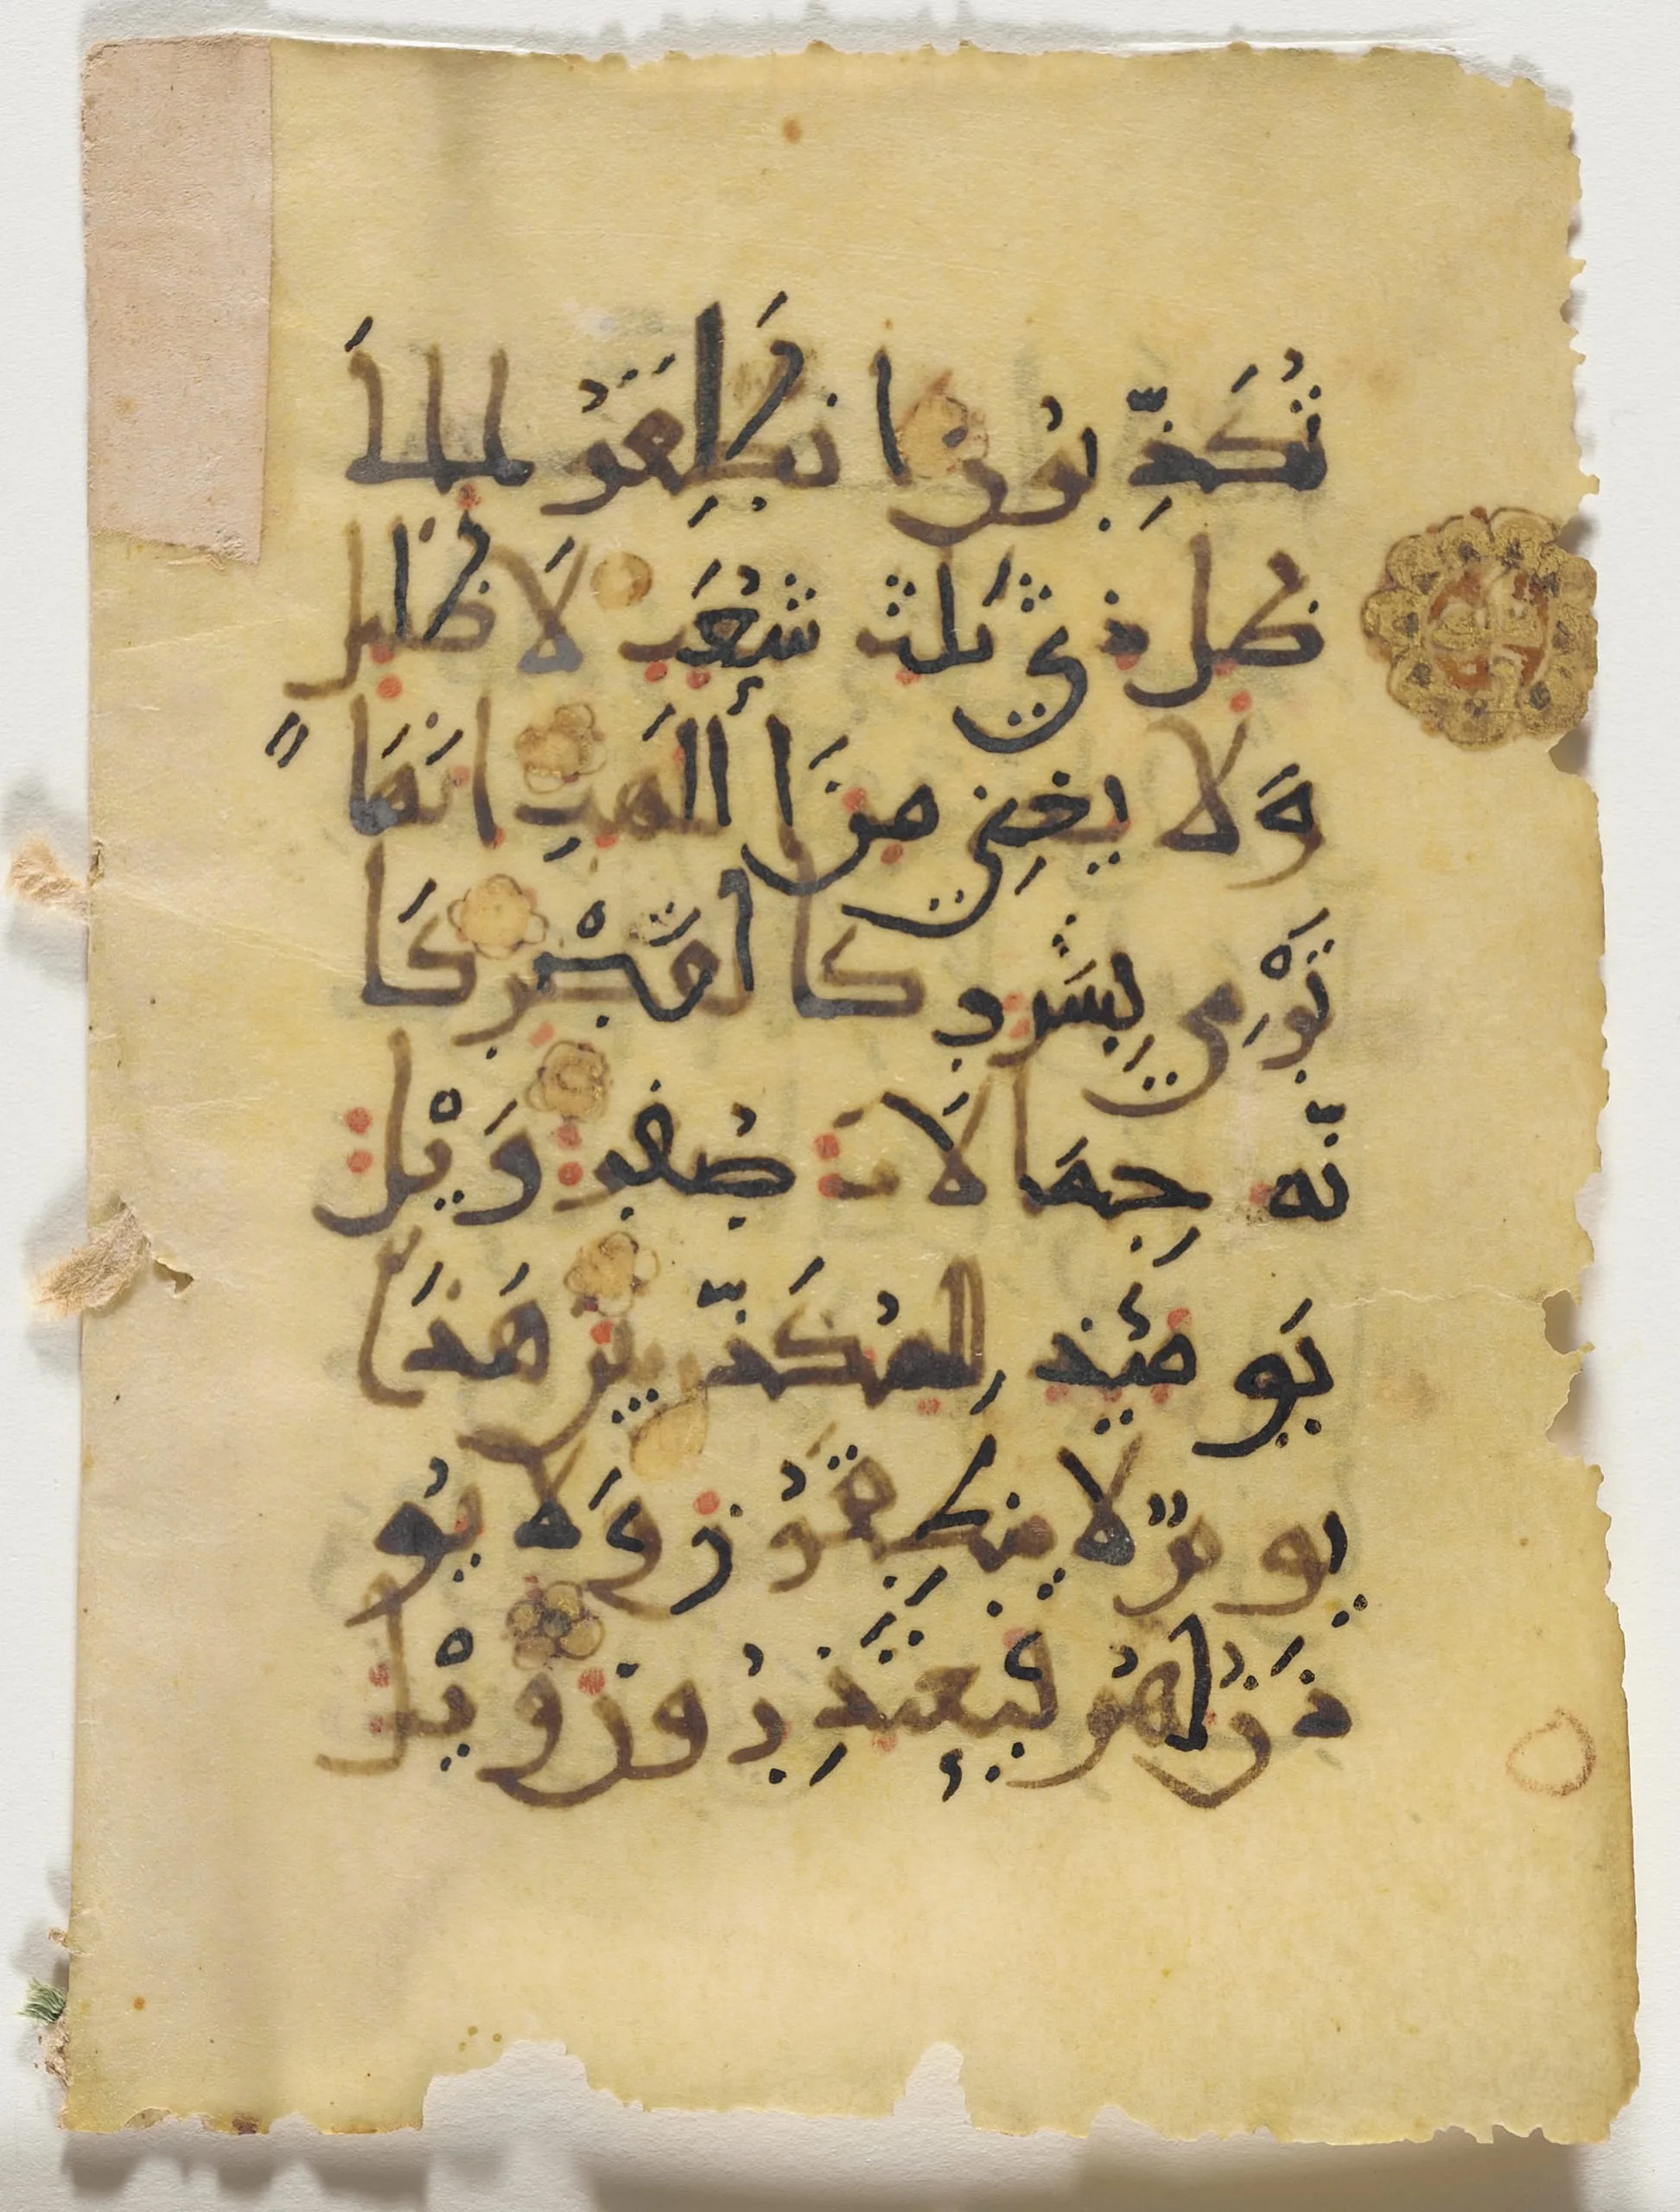 تُكَذِّبُوْنَ انطَلِقُوْا اِلَى
ظِلٍّ ذِي ثَلٰثِ شُعَبٍ لَا ظَلِيلٍ
وَلَا يُغْنِي مِنَ اللَّهَبِ اِنَّهَا
تَرْمِي بِشَرَرٍ كَالْقَصْرِ كَا
نَّهُ جِمَالَاتٌ صُفْرٌ وَيْلٌ
يَوْمَئِذٍ لِلْمُكَذِّبِينَ هَذَا
يَوْمُ لَا يَنْطِقُوْنَ وَلَا يُؤْ
ذَنُ لَهُمْ فَيَعْتَذِرُوْنَ وَيْلٌ